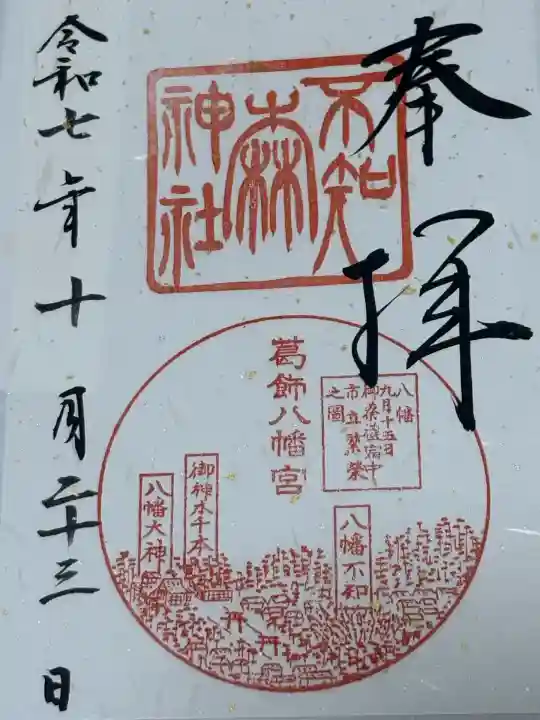 奉拝
不知
森
神社
葛飾八幡宮
八幡
九月十五日
御祭礼宿中
市立繁榮
之圖
御神木千本
八幡大神
八幡不知
令和七年十月二十三日